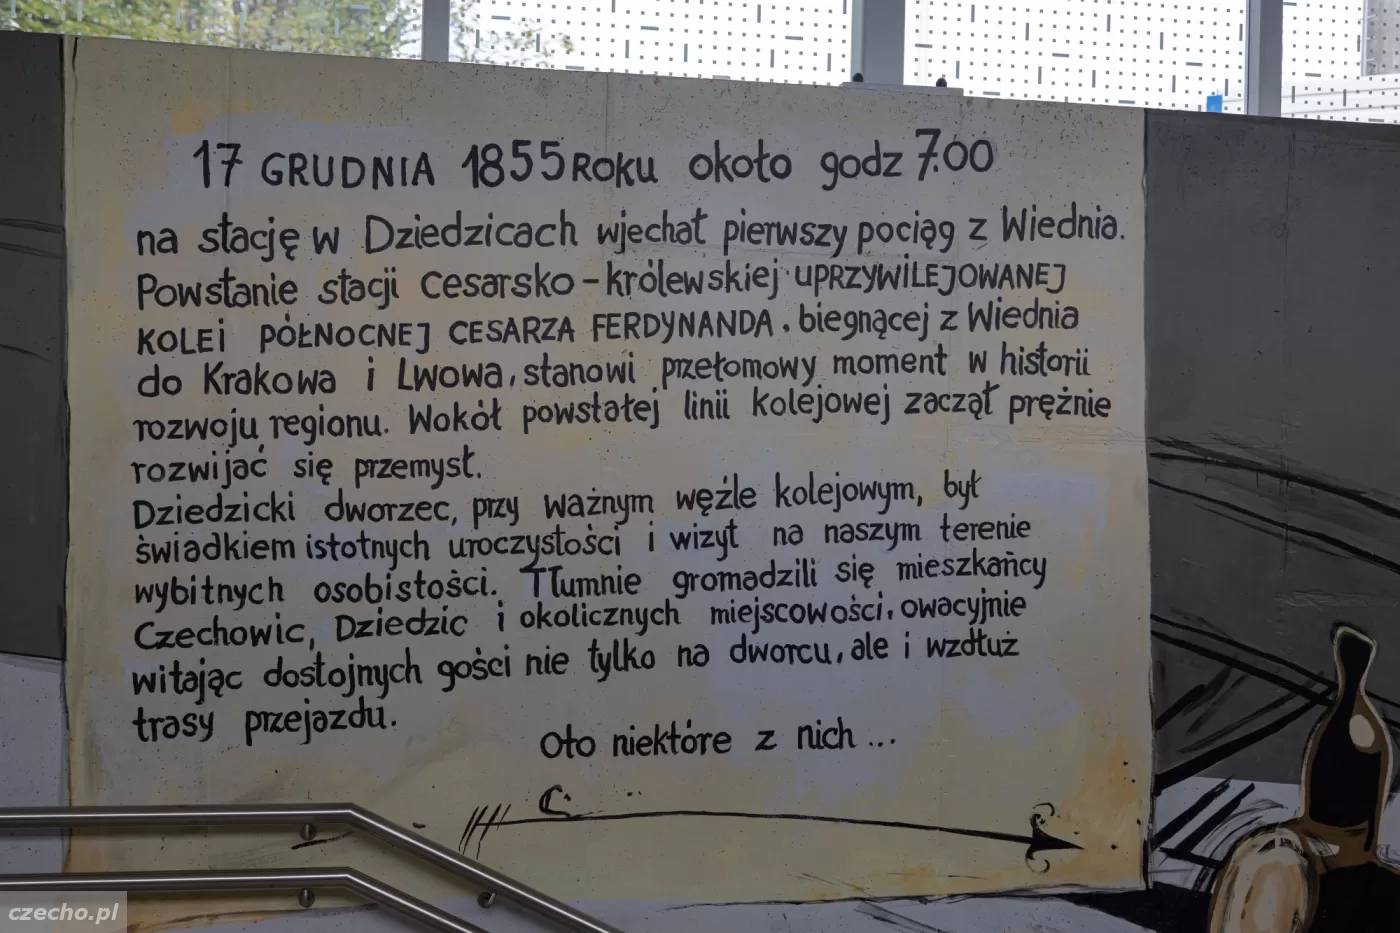 17 GRUDNIA 1855 ROKU około godz 7.00
na stację w Dziedzicach wjechał pierwszy pociąg z Wiednia.
Powstanie stacji Cesarsko-królewskiej UPRZYWILEJOWANEJ
KOLEI PÓŁNOCNEJ CESARZA FERDYNANDA, biegnącej z Wiednia
do Krakowa i Lwowa, stanowi przełomowy moment w historii
rozwoju regionu. Wokół powstałej linii kolejowej zaczął prężnie
rozwijać się przemysł.
Dziedzicki dworzec, przy ważnym węźle kolejowym, był
świadkiem istotnych uroczystości i wizyt na naszym terenie
wybitnych osobistości. Tłumnie gromadzili się mieszkańcy
Czechowic, Dziedzic i okolicznych miejscowości, owacyjnie
witając dostojnych gości nie tylko na dworcu, ale i wzdłuż
trasy przejazdu.
Oto niektóre z nich...
czecho.pl